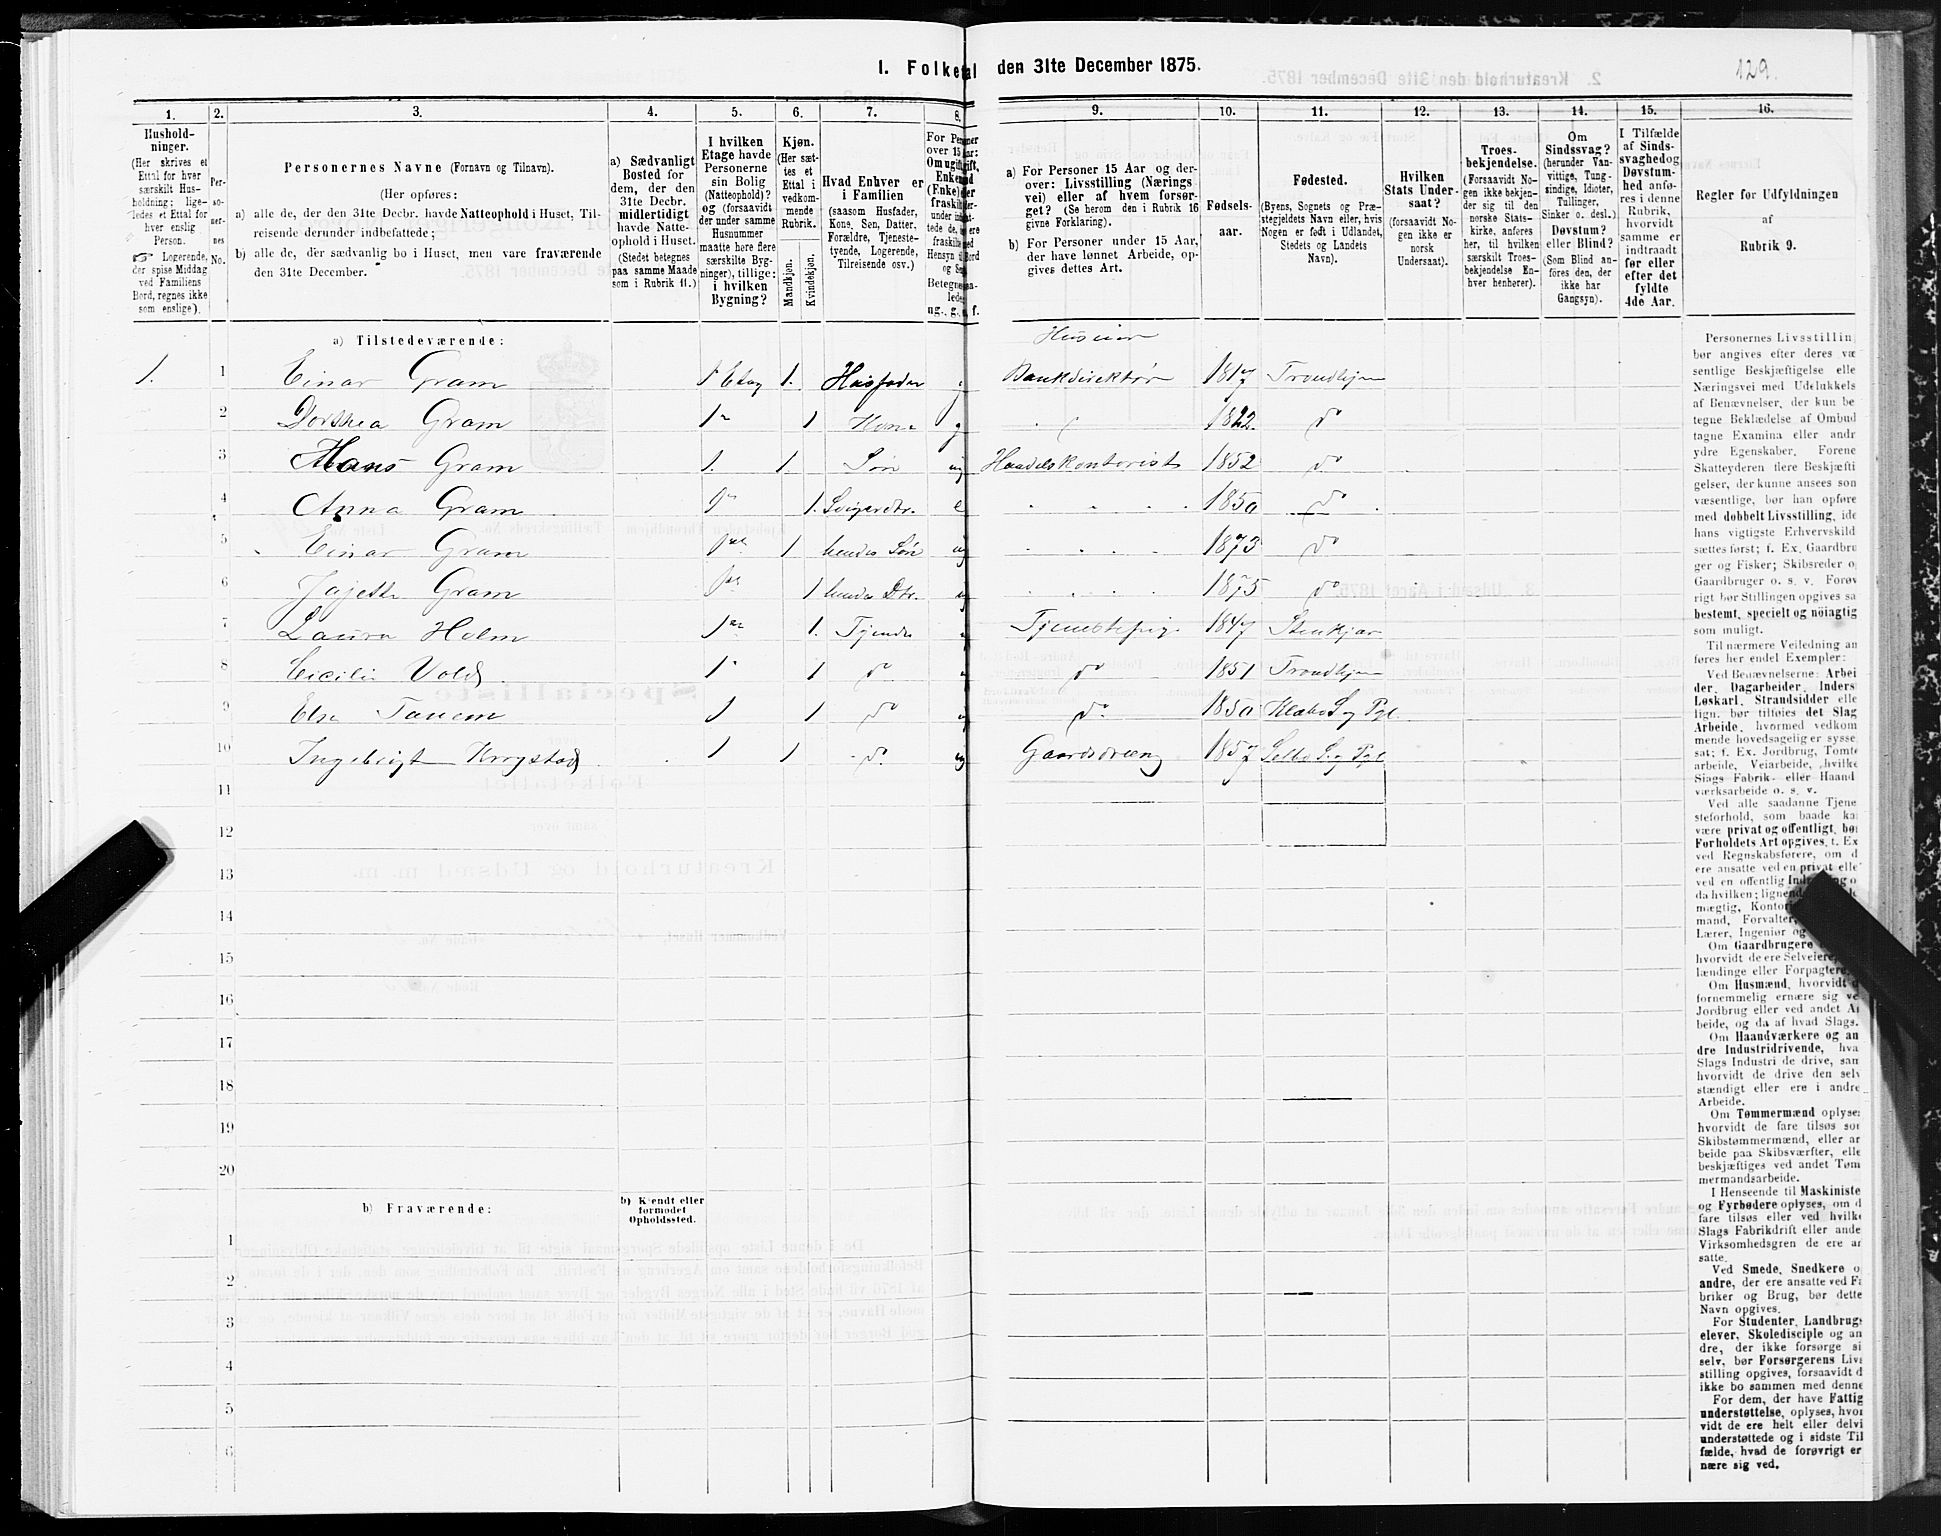 1. Folketal den 31te December 1875.
129.
1.
Hushold-
ninger.
(Her skrives et
Ettal for hver
særskilt Hus-
holdning; lige-
ledes et Ettal for
hver enslig
Person.
☞ Logerende,
der spise Middag
ved Familiens
Bord, regnes ikke
som enslige).
2.
Per-
so-
ner-
nes
No.
3.
Personernes Navne (Fornavn og Tilnavn).
(Her opføres:
a) alle de, der den 31te Decbr. havde Natteophold i Huset, Til-
reisende derunder indbefattede;
b) alle de, der sædvanlig bo i Huset, men vare fraværende
den 31te December.
4.
a) Sædvanligt
Bosted for
dem, der den
31te Decbr.
midlertidigt
havde Natte-
ophold i Huset.
(Stedet betegnes
paa samme Maade
som i Rubrik 11.)
5.
I hvilken
Etage havde
Personerne
sin Bolig
(Natteophold)?
og (forsaavidt
der under samme
Husnummer
maatte høre flere
særskilte Byg-
ninger), tillige:
i hvilken
Bygning?
6.
Kjøn.
(Her sæt-
tes et
Ettal i
vedkom-
mende
Rubrik.
Mandkjøn.
Kvindekjøn.
7.
Hvad Enhver er
i Familien
(saasom Husfader,
Kone, Søn, Datter,
Forældre, Tjeneste-
tyende, Logerende,
Tilreisende osv.)
8.
For Personer
over 15 Aar:
Om ugift, gift,
9.
a) For Personer 15 Aar og der-
over: Livsstilling (Nærings-
vei) eller af hvem forsør-
get? (Se herom den i Rubrik 16
givne Forklaring).
b) For Personer under 15 Aar,
der have lønnet Arbeide, op-
gives dettes Art.
10.
Fødsels-
aar.
11.
Fødested.
(Byens, Sognets og Præ-
stegjeldets Navn eller, hvis
Nogen er født i Udlandet,
Stedets og Landets
Navn).
12.
Hvilken
Stats Under-
saat?
(forsaavidt No-
gen ikke er
norsk
Undersaat).
13.
Troes-
bekjendelse.
(Forsaavidt No-
gen ikke bekjen-
der sig til den
norske Stats-
kirke, anføres
her, til hvilken
særskilt Troes-
bekjendelse En-
hver henhører).
14.
Om
Sindssvag?
(herunder Van-
vittige, Tung-
sindige, Idioter,
Tullinger,
Sinker o. desl.)
Døvstum?
eller Blind?
(Som Blind an-
føres den, der
ikke har
Gangsyn).
15.
I Tilfælde
af Sinds-
svaghed og
Døvstum-
hed anfø-
res i denne
Rubrik,
hvorvidt
samme er
indtraadt
før eller
efter det
fyldte
4de Aar.
16.
Regler for Udfyldningen
af
Rubrik 9.
a) Tilstedeværende:
Huseier
1. 1 Einar Gram 1 Etag 1. Husfader g Bankdirektør 1817 Trondhjem
2 Dorthea Gram 1 1 Kone g 1822 do
3 Hans Gram 1. 1. Søn ug Handelskontorist 1852 do
4 Anna Gram 1 1. Svigerdtr. e 1850 do
5 Einar Gram 1 1 hendes Søn ug 1873 do
6 Jajette Gram 1 1 hendes Dtr. 1875 do
7 Laura Holm 1 1. Tjener Tjenestepig. 1847 Stenkjær
8 Cicilie Vold 1 1 do do 1851 Trondhjem
9 Else Tanem 1 1 do do 1850 Klæbo S og Pgl.
10 Ingebrigt Krogstad 1 1 do ug Gaardsdreng 1857 Selbo S. og Pgl.
11
12
13
14
15
16
17
18
19
20
b) Fraværende:
b) Kjendt eller
formodet
Opholdssted.
1
2
3
4
5
6
Personernes Livsstillin
bør angives efter deres væ
sentlige Beskjæftigelse elle
Næringsvei med Udelukkels
af Benævnelser, der kun be
tegne Beklædelse af Ombud
tagne Examina eller andr
ydre Egenskaber. Forene
Skatteyderen flere Beskjæfti
gelser, der kunne ansees son
væsentlige, bør han opføre
med dobbelt Livsstilling, ide
hans vigtigste Erhvervskild
sættes først; f. Ex. Gaardbru
ger og Fisker; Skibsreder o
Gaardbruger o. s. v. Forøv
rigt bør Stillingen opgives sa
bestemt, specielt og nøiagtig
som muligt.
Til nærmere Veiledning an
føres her endel Exempler:
Ved Benævnelserne: Arbei
der, Dagarbeider, Inders
Løskarl, Strandsidder elle
lign. bør tilføies det Slag
Arbeide, hvormed vedkom
mende hovedsagelig er sysse
sat; f. Ex. Jordbrug, Tomte
arbeide, Veiarbeide, hvilke
Slags Fabrik- eller Haand
værksarbeide o. s. v.
Ved alle saadanne Tjene
steforhold, som baade ka
være privat og offentligt, bø
Forholdets Art opgives, f. Ex
ved Regnskabsførere, om d
ere ansatte ved en privat elle
Om Gaardbrugere
hvorvidt de ere Selveiere,
lændinge eller Forpagtere.
Om Husmænd, hvorvidt d
fornemmelig ernære sig ve
Jordbrug eller ved andet Ar
beide, og da af hvad Slags.
Om Haandværkere og an
dre Industridrivende, hva
Slags Industri de drive, san
hvorvidt de drive den selv
stændigt eller ere i andre
Arbeide.
Om Tømmermænd oplyse
hvorvidt de fare tilsøs sor
Skibstømmermænd, eller ar
beide paa Skibsværfter, elle
beskjæftiges ved andet Tøm
mermandsarbeide.
I Henseende til Maskiniste
og Fyrbødere oplyses, om d
fare tilsøs eller ved hvilke
Slags Fabrikdrift eller ande
Virksomhedsgren de ere an
satte.
Ved Smede, Snedkere o
andre, der ere ansatte ved Fa
briker og Brug, bør dette
Navn opgives.
For Studenter, Landbrugs
elever, Skoledisciple og an
dre, der ikke forsørge si
selv, bør Forsørgerens Livs
stilling opgives, forsaavidt d
ikke bo sammen med denne
For dem, der have Fattig
understøttelse, oplyses, hvor
vidt de ere helt eller delvi
understøttede og i sidste Til
fælde, hvad de forøvrigt er
nære sig ved.